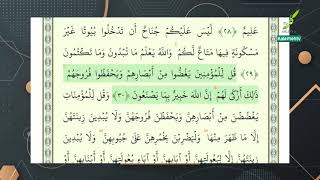 عَلِيمٌ ﴿٢٨﴾ لَّيْسَ عَلَيْكُمْ جُنَاحٌ أَن تَدْخُلُوا بُيُوتًا غَيْرَ
مَسْكُونَةٍ فِيهَا مَتَاعٌ لَّكُمْ وَاللَّهُ يَعْلَمُ مَا تُبْدُونَ وَمَا تَكْتُمُونَ
﴿٢٩﴾ قُل لِّلْمُؤْمِنِينَ يَغُضُّوا مِنْ أَبْصَارِهِمْ وَيَحْفَظُوا فُرُوجَهُمْ
ذَٰلِكَ أَزْكَىٰ لَهُمْ إِنَّ اللَّهَ خَبِيرٌ بِمَا يَصْنَعُونَ ﴿٣٠﴾ وَقُل لِّلْمُؤْمِنَاتِ
يَغْضُضْنَ مِنْ أَبْصَارِهِنَّ وَيَحْفَظْنَ فُرُوجَهُنَّ وَلَا يُبْدِينَ زِينَتَهُنَّ
إِلَّا مَا ظَهَرَ مِنْهَا وَلْيَضْرِبْنَ بِخُمُرِهِنَّ عَلَىٰ جُيُوبِهِنَّ وَلَا يُبْدِينَ
زِينَتَهُنَّ إِلَّا لِبُعُولَتِهِنَّ أَوْ آبَائِهِنَّ أَوْ آبَاءِ بُعُولَتِهِنَّ أَوْ أَبْنَائِهِنَّ أَوْ